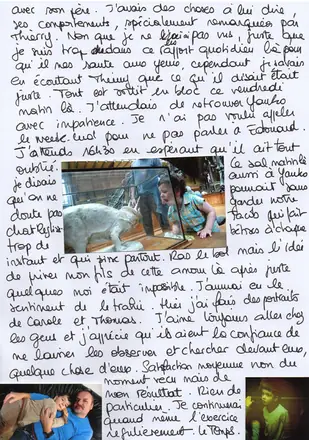 avec son père. J'avais des choses à lui dire,
ses comportements, spécialement remarqués par
Thierry. Non que je ne les ai pas vus, juste que
je suis trop dans ce rapport quotidien là pour
qu'il me saute aux yeux, cependant je savais
en écoutant Thierry que ce qu'il disait était
juste. Tout est sorti en bloc ce vendredi
matin là. J'attendais de retrouver Yanko
avec impatience. Je n'ai pas voulu appeler
le week-end pour ne pas parler à
J'attends 16h30 en espérant qu'il ait tout
oublié. Ce matin là
je disais aussi à Yanko
qu'on ne pouvait sans
doute pas garder notre
qui fait
trop de bêtises à chaque
instant et qui pisse partout. Ras le bol mais l'idée
de priver mon fils de cette amour là après juste
quelques mois était impossible. J'aurais eu le
sentiment de le trahir. Hier j'ai fais des portraits
de Carole et Thomas. J'aime toujours aller chez
les gens et j'apprécie qu'ils aient la confiance de
me laisser les observer et chercher devant eux,
quelque chose d'eux. Satisfaction moyenne non du
moment vécu mais de
mon résultat. Rien de
particulier. Je continuerai
quand même l'exercice
régulièrement. le Temps.